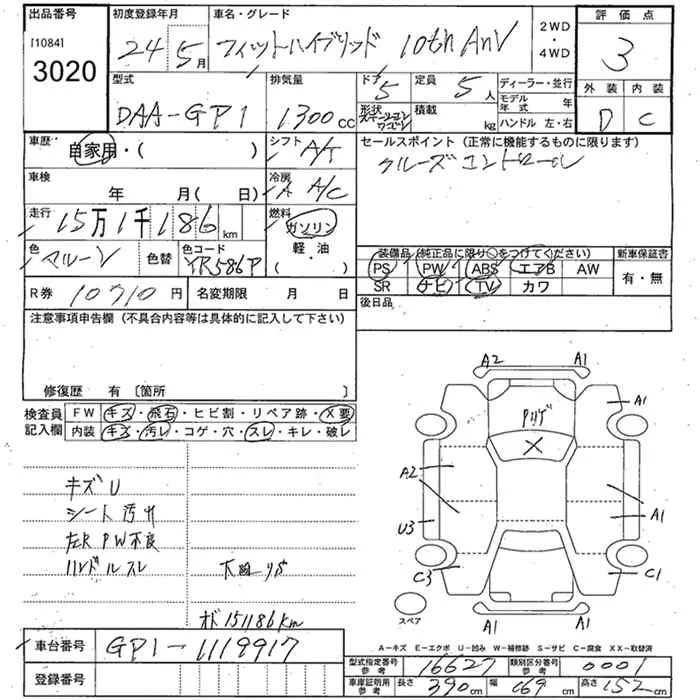 出品番号
[1084]
3020
初度登録年月
24年5月
車名・グレード
フィットハイブリッド 10th AnV
2WD
・
4WD
評価点
3
外装 内装
D C
型式
DAA-GP1
排気量
1300cc
ドア
5
定員
5人
形状
ステーションワゴン
積載
kg
ディーラー・並行
モデル年式 年
ハンドル 左・右
車歴
自家用・( )
シフト
A/T
セールスポイント (正常に機能するものに限ります)
クルーズコントロール
車検
年 月( 日)
冷房
A A/C
走行
15万1千186km
燃料
ガソリン
軽・油
・( )
色
マルーン
色替
色コード
YR586P
装備品 (純正品に限り○をつけてください)
新車保証書
PS PW ABS エアB AW
SR ナビ TV カワ
有・無
後日品
R券 10710円
名変期限 月 日
注意事項申告欄 (不具合内容等は具体的に記入して下さい)
修復歴 有 〔箇所 〕
検査員記入欄
FW キズ・飛石・ヒビ割・リペア跡・X要
内装 キズ・汚レ・コゲ・穴・スレ・キレ・破レ
キズU
シート汚れ
左R PW不良
ハンドルスレ
オド151186km
A2 A1
A1
X
A2
A1
U3
C3 C1
A1 A1
スペア
A-キズ E-エクボ U-凹み W-補修跡 S-サビ C-腐食 XX-取替済
車台番号
GP1-1119917
登録番号
型式指定番号 参考
16627
類別区分番号 参考
0001
車庫証明用 参考
長さ 390cm
幅 169cm
高さ 152cm